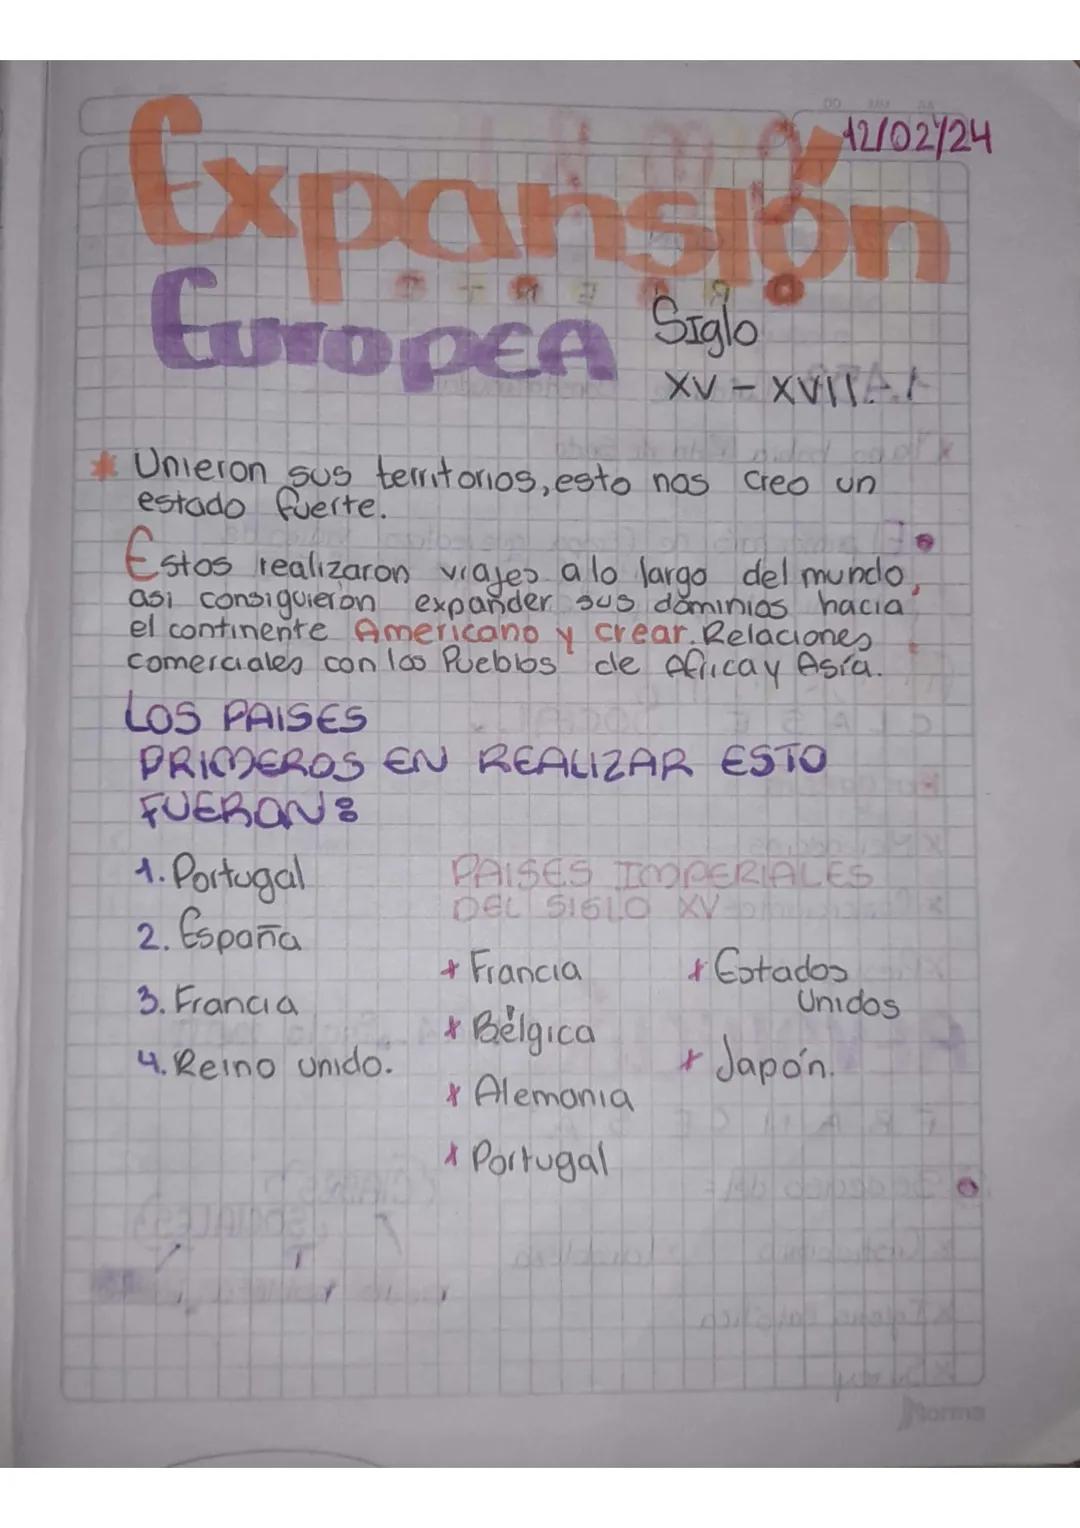 DD MM AA
12/02/24
Expansión
EuropEA
Siglo
XV - XVII.
* Unieron sus territorios, esto nos creo un
estado fuerte.
Estos realizaron viajes a lo largo del mundo,
asi consiguieron expander sus dominios hacia
el continente Americano y crear. Relaciones
comerciales con los Pueblos de Africa y Asía.
LOS PAISES
PRIMEROS EN REALIZAR ESTO
FUERON:
1. Portugal
2. España
3. Francia
4. Reino unido.
PAISES IMPERIALES
DEL SIGLO XV
* Francia
* Bélgica
* Alemania
* Portugal
* Estados
Unidos
* Japón.
Norma